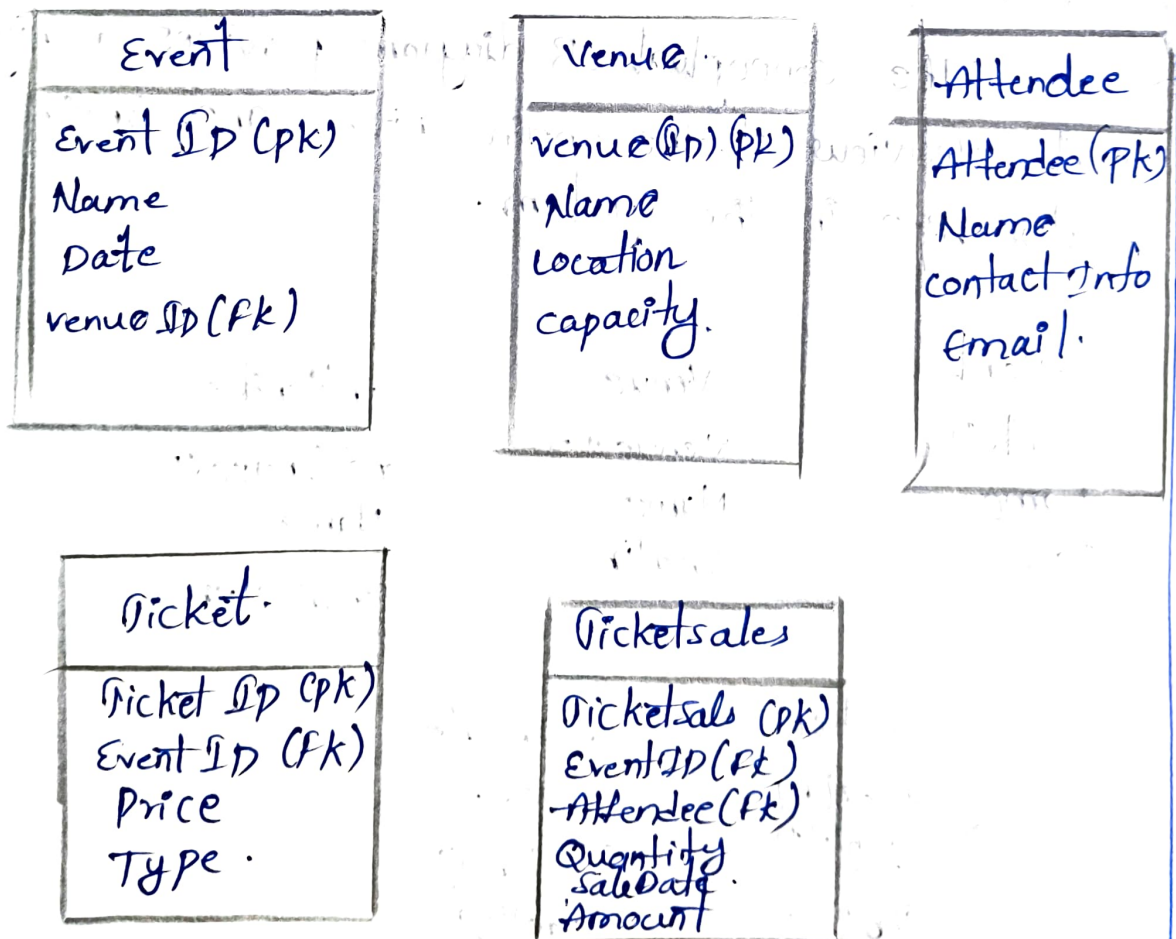 Event
Event ID (pk)
Name
Date
venue ID (fk)
Venue
venue (ID) (pk)
Name
Location
capacity.
Attendee
Attendee (pk)
Name
contact Info
Email.
Ticket.
Ticket ID (pk)
Event ID (fk)
Price
Type.
Ticketsales
Ticketsals (pk)
EventID (fk)
Attendee (fk)
Quantity
SaleDate.
Amount